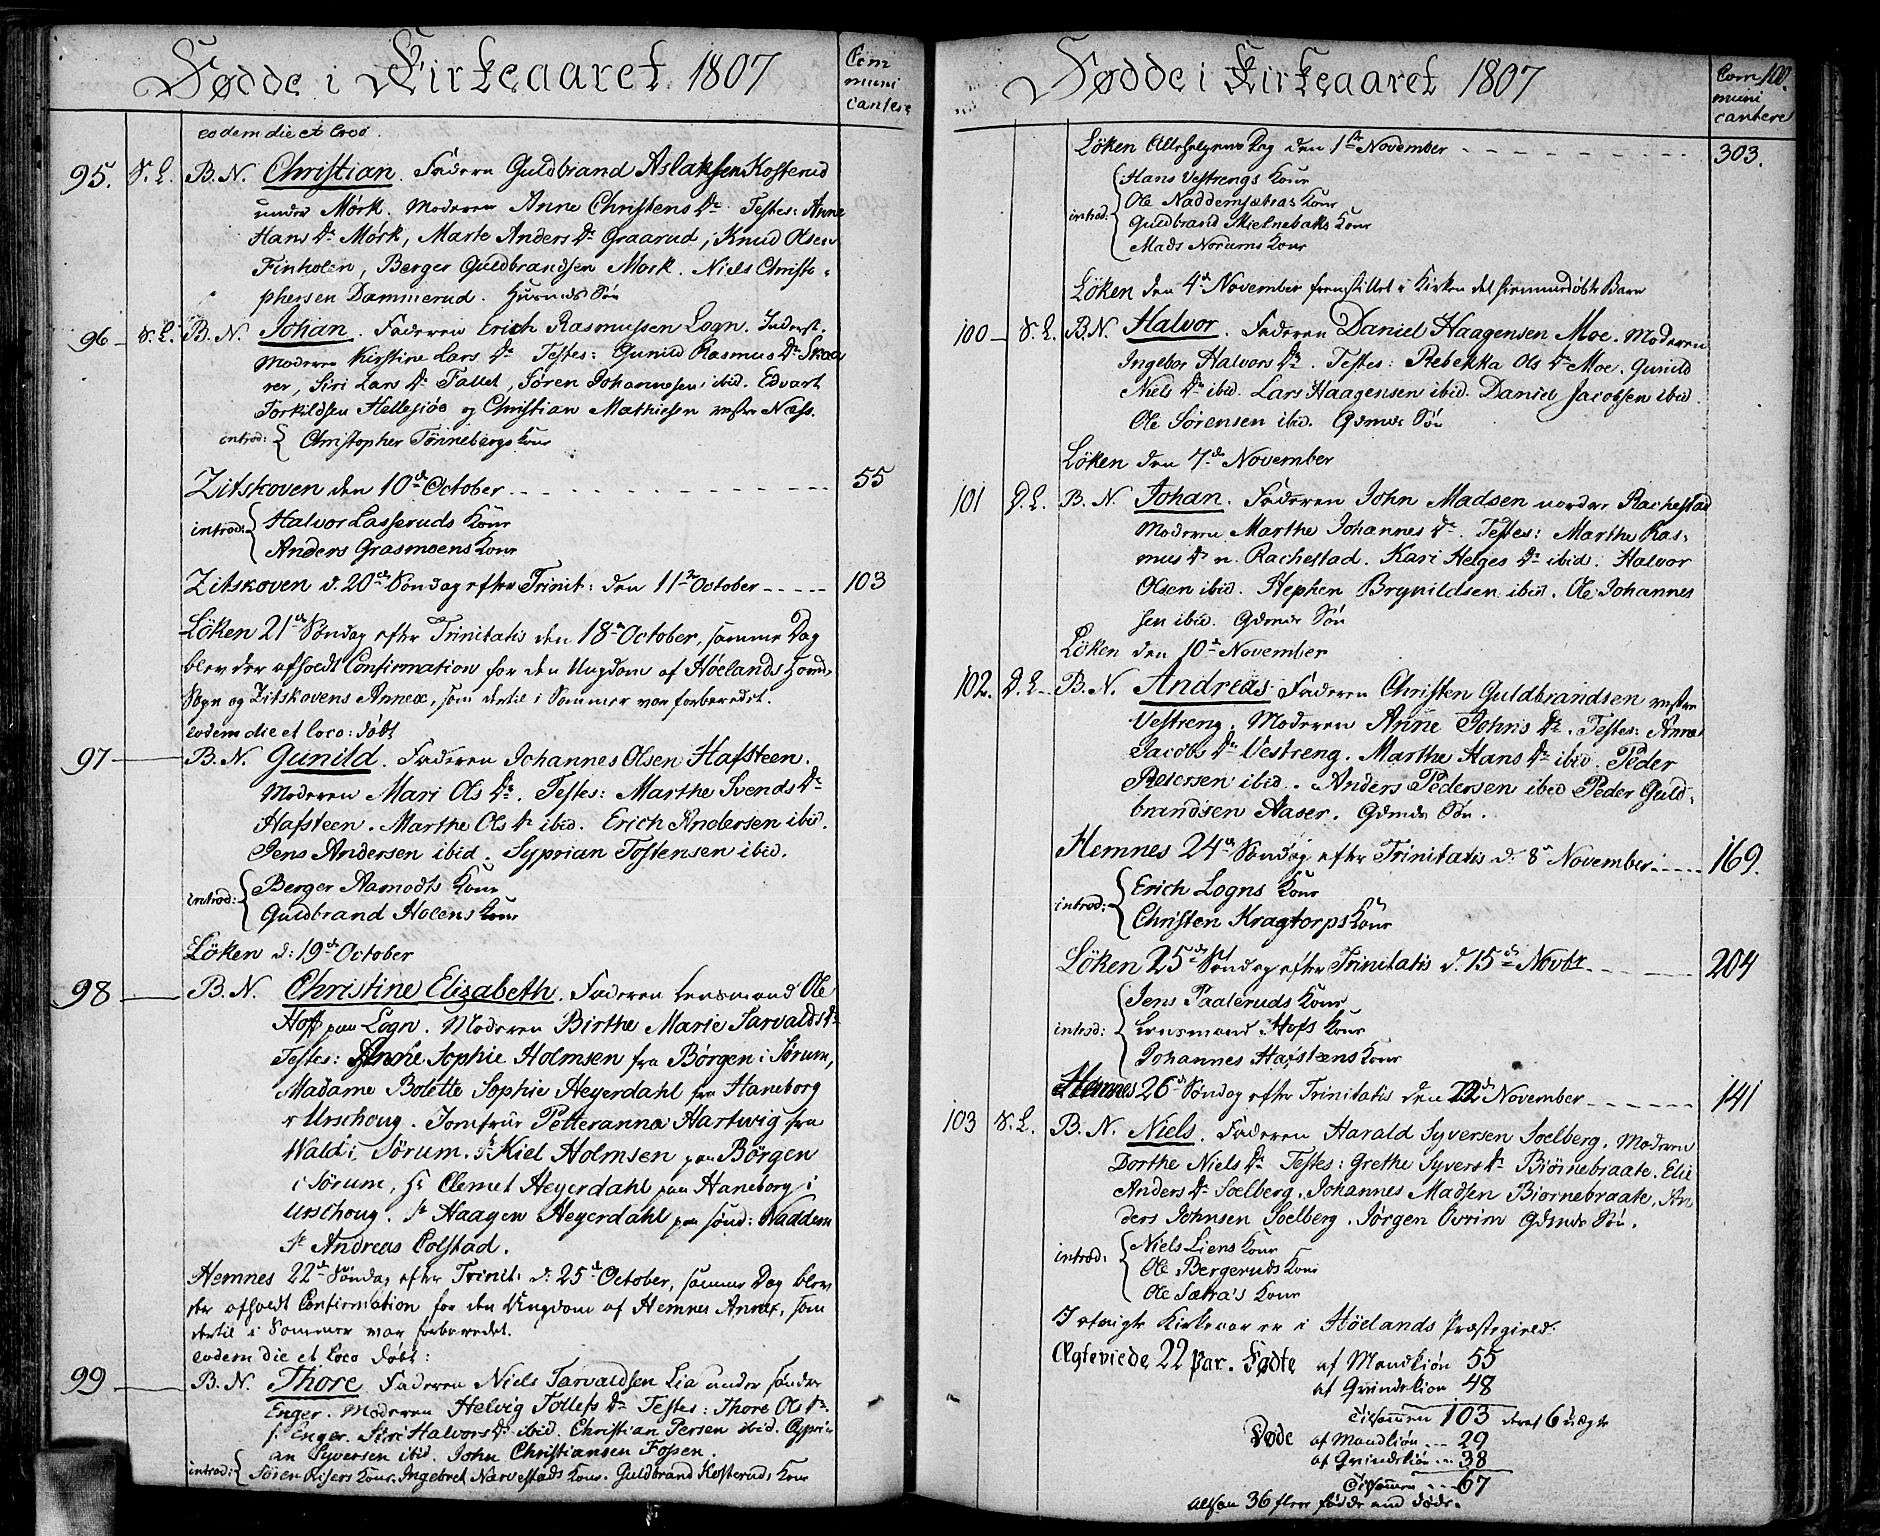 Fødde i Kirkeaaret 1807
Com
muni
cantere
eodem die et loco.
95. S. L. B. N. Christian. Faderen Guldbrand Aslaksen Kosterud
under Mørk. Moderen Anne Christens Dr. Testes: Anne
Hans Dr Mørk, Marte Anders Dr Graarud, Knud Olsen
Finholen, Berger Guldbrandsen Mork. Niels Christo-
phersen Dammerud. Huusmds Søn
96 S. L. B. N. Johan. Faderen Erich Rasmussen Logn. Inderst.
Moderen Kirstine Lars Dr Testes: Gunild Rasmus Dr Skaa
rer, Siri Lars Dr Tallet, Søren Johannesen ibid. Edvart
Torkildsen Hellesiøe og Christian Mathiesen vestre Næss.
introd: Christopher Tønnebergs Kone
Zitskoven den 10de October 55
introd: Halvor Lasseruds Kone
Anders Grasmoens Kone
Zitskoven d. 20de Søndag efter Trinit: den 11te October 103
Löken 21de Søndag efter Trinitatis den 18de October, samme Dag
blev der afholdt Confirmation for den Ungdom af Høelands Hoved
Sogn og Zitskovens Annex, som dertil i Sommer var forberedet.
eodem die et loco: døbt
97 B. N. Gunild. Faderen Johannes Olsen Hafsteen.
Moderen Mari Ols Dr. Testes: Marthe Svends Dr
Hafsteen. Marthe Ols Dr ibid. Erich Andersen ibid.
Jens Andersen ibid. Syprian Tostensen ibid.
introd: Berger Aamodts Kone
Guldbrand Holens Kone
Löken d: 19de October
98 B. N. Christine Elizabeth. Faderen Lensmand Ole
Hoff paa Logn. Moderen Birthe Marie Sarvalds Dr
Testes: Anne Sophie Holmsen fra Børgen i Sørum,
Madame Bolette Sophie Heyerdahl fra Haneborg
i Urschoug. Jomfrue Petteranna Hartwig fra
Wald i Sørum. Sr Kiel Holmsen paa Börgen
i Sørum, Hr Clemet Heyerdahl paa Haneborg i
Urschoug. Sr Haagen Heyerdahl paa sönd: Naddem
Sr Andreas Colstad.
Hemnes 22de Søndag efter Trinit: d: 25de October, samme Dag blev
der afholdt Confirmation for den Ungdom af Hemnes Annex, som
dertil i Sommer var forberedet.
eodem die et Loco døbt:
99 B. N. Thore. Faderen Niels Tarvaldsen Lia under sönder
Enger. Moderen Helvig Tollefs Dr Testes: Thore Ols Dr.
s. Enger. Siri Halvors Dr ibid. Christian Persen ibid. Cypri
an Syversen ibid. John Christiansen Fossen.
introd: Søren Risers Kone. Ingebret Narvestads Kone. Guldbrand Kosteruds Kone
Fødde i Kirkeaaret 1807
Com 100.
muni
cantere
Löken Allehelgens Dag den 1ste November 303.
introd: Hans Vestrengs Kone
Ole Naddemsætras Kone
Guldbrand Mielnebaks Kone
Mads Nordums Kone
Löken den 4de November fremstillet i Kirken det hiemmedøbte Barn
100 S. L. B. N. Halvor. Faderen Daniel Haagensen Moe. Moderen
Ingebor Halvors Dr. Testes: Rebekka Ols Dr Moe. Gunild
Niels Dr ibid. Lars Haagensen ibid. Daniel Jacobsen ibid.
Ole Sörensen ibid. Gdmds Søn
Löken den 7de November
101 D. L. B. N. Johan. Faderen John Madsen nordre Rachestad
Moderen Marthe Johannes Dr. Testes: Marthe Ras-
mus Dr n. Rachestad. Kari Helges Dr ibid. Halvor
Olsen ibid. Hephen Brynildsen ibid. Ole Johannes
sen ibid. Gdmds Søn
Löken den 10de November
102. D. L. B. N. Andreas. Faderen Christen Guldbrandsen vestre
Vestreng. Moderen Anne Johns Dr. Testes: Anne
Jacobs Dr Vestreng. Marthe Hans Dr ibid. Peder
Petersen ibid. Anders Pedersen ibid Peder Guld-
brandsen Aaser. Gdmds Søn.
Hemnes 24de Søndag efter Trinitatis d: 8de November 169.
introd: Erich Logns Kone
Christen Kragtorps Kone
Löken 25de Søndag efter Trinitatis d. 15de Novbr 204
introd: Jens Paaleruds Kone
Lensmand Hofs Kone
Johannes Hafsteens Kone
Hemnes 26de Søndag efter Trinitatis den 22de November 141
103 S. L. B. N. Niels. Faderen Harald Syversen Soelberg. Moderen
Dorthe Niels Dr Testes: Grethe Syvers Dr Biørnebraate. Elie
Anders Dr Soelberg. Johannes Madsen Biørnebraate, An
ders Johnsen Soelberg. Jørgen Ovrim Gdmds Søn.
introd: Niels Liens Kone
Ole Bergeruds Kone
Ole Sætra's Kone
I etvigte Kirkeaar er i Höelands Præstegield:
Ægteviede 22 Par. Fødte af Mandkiön 55
af Qvindekiön 48
Tilsammen 103 deraf 6 Uægte
Døde af Mandkiön 29
af Qvindekiön 38
Tilsammen 67
altsaa 36 flere fødde end døde.